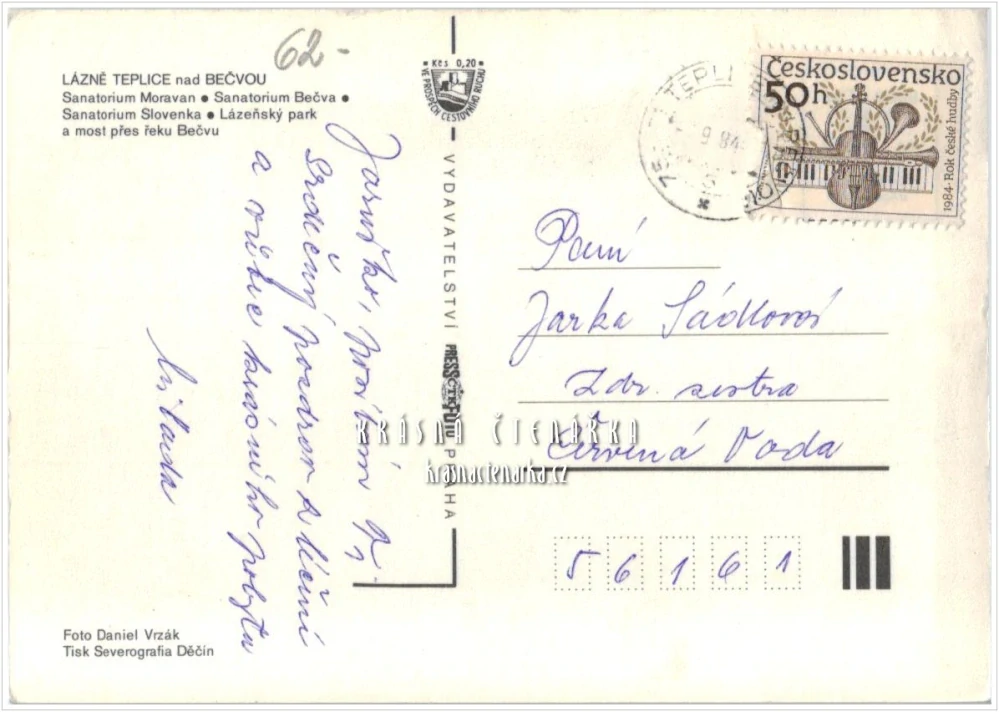 62-
LÁZNĚ TEPLICE nad BEČVOU
Sanatorium Moravan ● Sanatorium Bečva ●
Sanatorium Slovenka ● Lázeňský park
a most přes řeku Bečvu
Kčs 0,20
VE PROSPĚCH CESTOVNÍHO RUCHU
Československo
50h
1984 · Rok české hudby
TEPLI
9 84
Jaruško, posílám Ti
srdečný pozdrav z léčení
a
pobytu
VYDAVATELSTVÍ PRESSFOTO PRAHA
ČTK
Paní
Jarka Sádlová
Zdr. sestra
Červená Voda
56161
KRÁSNÁ ČTENÁŘKA
krasnactenarka.cz
Foto Daniel Vrzák
Tisk Severografia Děčín